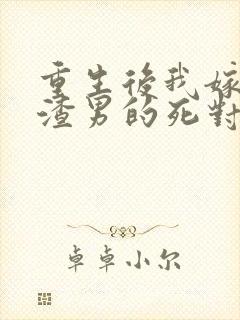 重生後我嫁
渣男的死對
卓卓小尔